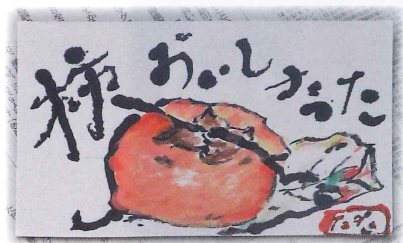 柿おいしかった